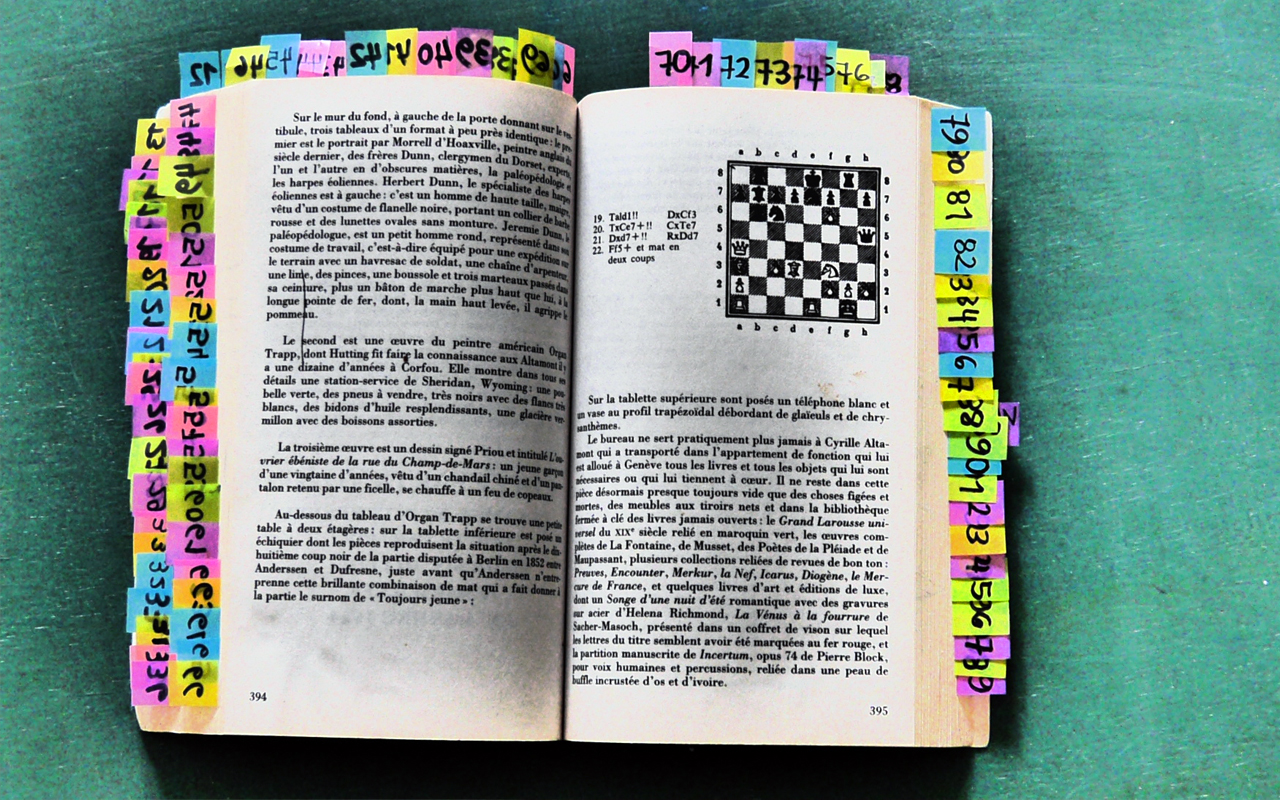 Sur le mur du fond, à gauche de la porte donnant sur le ves-
tibule, trois tableaux d'un format à peu près identique : le pre-
mier est le portrait par Morrell d'Hoaxville, peintre anglais du
siècle dernier, des frères Dunn, clergymen du Dorset, experts
l'un et l'autre en d'obscures matières, la paléopédologie et
les harpes éoliennes. Herbert Dunn, le spécialiste des harpes
éoliennes est à gauche : c'est un homme de haute taille, maigre,
vêtu d'un costume de flanelle noire, portant un collier de barbe
rousse et des lunettes ovales sans monture. Jeremie Dunn, le
paléopédologue, est un petit homme rond, représenté dans son
costume de travail, c'est-à-dire équipé pour une expédition sur
le terrain avec un havresac de soldat, une chaîne d'arpenteur,
une lime, des pinces, une boussole et trois marteaux passés dans
sa ceinture, plus un bâton de marche plus haut que lui, à la
longue pointe de fer, dont, la main haut levée, il agrippe le
pommeau.
Le second est une œuvre du peintre américain Organ
Trapp, dont Hutting fit faire la connaissance aux Altamont il y
a une dizaine d'années à Corfou. Elle montre dans tous ses
détails une station-service de Sheridan, Wyoming : une pou-
belle verte, des pneus à vendre, très noirs avec des flancs très
blancs, des bidons d'huile resplendissants, une glacière ver-
millon avec des boissons assorties.
La troisième œuvre est un dessin signé Priou et intitulé L'ou-
vrier ébéniste de la rue du Champ-de-Mars : un jeune garçon
d'une vingtaine d'années, vêtu d'un chandail chiné et d'un pan-
talon retenu par une ficelle, se chauffe à un feu de copeaux.
Au-dessous du tableau d'Organ Trapp se trouve une petite
table à deux étagères : sur la tablette inférieure est posé un
échiquier dont les pièces reproduisent la situation après le dix-
huitième coup noir de la partie disputée à Berlin en 1852 entre
Anderssen et Dufresne, juste avant qu'Anderssen n'entre-
prenne cette brillante combinaison de mat qui a fait donner à
la partie le surnom de « Toujours jeune » :
394
70 71 72 73 74 75 76
a b c d e f g h
8 8
7 7
6 6
5 5
4 4
3 3
2 2
1 1
a b c d e f g h
19. Tald1!! DxCf3
20. TxCe7+!! CxTe7
21. Dxd7+!! RxDd7
22. Ff5+ et mat en
deux coups
Sur la tablette supérieure sont posés un téléphone blanc et
un vase au profil trapézoïdal débordant de glaïeuls et de chry-
santhèmes.
Le bureau ne sert pratiquement plus jamais à Cyrille Alta-
mont qui a transporté dans l'appartement de fonction qui lui
est alloué à Genève tous les livres et tous les objets qui lui sont
nécessaires ou qui lui tiennent à cœur. Il ne reste dans cette
pièce désormais presque toujours vide que des choses figées et
mortes, des meubles aux tiroirs nets et dans la bibliothèque
fermée à clé des livres jamais ouverts : le Grand Larousse uni-
versel du XIXe siècle relié en maroquin vert, les œuvres com-
plètes de La Fontaine, de Musset, des Poètes de la Pléiade et de
Maupassant, plusieurs collections reliées de revues de bon ton :
Preuves, Encounter, Merkur, la Nef, Icarus, Diogène, le Mer-
cure de France, et quelques livres d'art et éditions de luxe,
dont un Songe d'une nuit d'été romantique avec des gravures
sur acier d'Helena Richmond, La Vénus à la fourrure de
Sacher-Masoch, présenté dans un coffret de vison sur lequel
les lettres du titre semblent avoir été marquées au fer rouge, et
la partition manuscrite de Incertum, opus 74 de Pierre Block,
pour voix humaines et percussions, reliée dans une peau de
buffle incrustée d'os et d'ivoire.
395
79
81
82